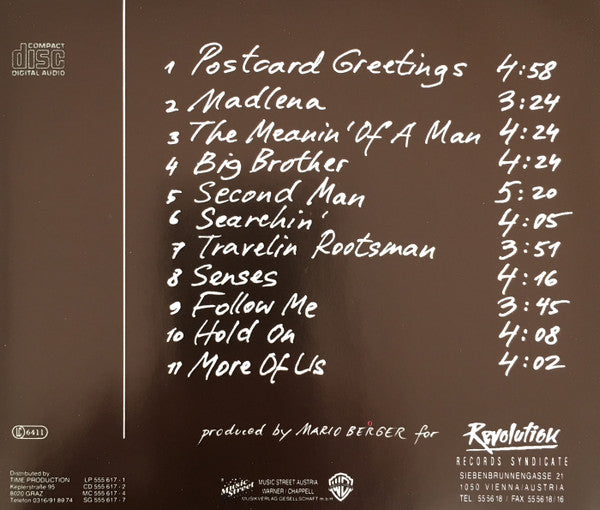 COMPACT
disc
DIGITAL AUDIO
1 Postcard Greetings 4:58
2 Madlena 3:24
3 The Meanin' Of A Man 4:24
4 Big Brother 4:24
5 Second Man 5:20
6 Searchin' 4:05
7 Travelin Rootsman 3:51
8 Senses 4:16
9 Follow Me 3:45
10 Hold On 4:08
11 More Of Us 4:02
LC 6411
produced by MARIO BERGER for
Revolution
RECORDS SYNDICATE
SIEBENBRUNNENGASSE 21
1050 VIENNA/AUSTRIA
TEL. 55 56 18 / FAX 55 56 18/16
Distributed by
TIME PRODUCTION
Keplerstraße 95
8020 GRAZ
Telefon 0316/91 89 74
LP 555 617 - 1
CD 555 617 - 2
MC 555 617 - 4
SG 555 617 - 7
Music Street
MUSIC STREET AUSTRIA
WARNER / CHAPPELL
MUSIKVERLAG GESELLSCHAFT m.b.H